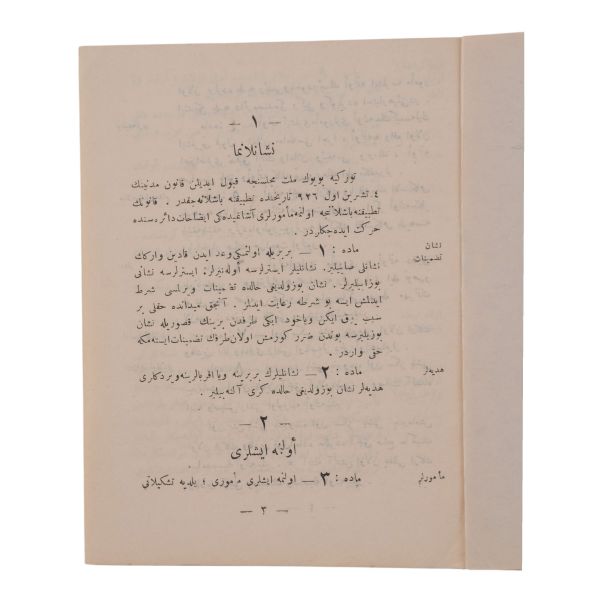 — ١ —
نشانلانما
توركیه بویوك ملت مجلسنجه قبول ایدیلن قانون مدنینك
٤ تشرین اول ٩٢٦ تاریخنده تطبیقنه باشلانه جقدر . قانونك
تطبیقنه باشلاننجه اولنمه مأمورلری آشاغیده كی ایضاحات دائره سنده
حركت ایده جكلردر .
نشان
تضمینات
ماده : ١ — بربریله اولنمكی وعد ایدن قادین واركك
نشانلی صاییلیر. نشانلیلر ایسترلرسه أوله نیرلر، ایسترلرسه نشانی
بوزابیلیرلر . نشان بوزولدیغی حالده تضمینات ویرلمسی شرط
ایدلمش ایسه بو شرطه رعایت ایدلمز . آنجق میدانده حقلی بر
سبب یوق ایكن ویاخود ایكی طرفدن برینك قصوریله نشان
بوزیلیرسه بوندن ضرر كورمش اولان طرفك تضمینات ایسته مكه
حقی واردر .
هدیه لر
ماده : ٢ — نشانلیلرك بربرینه ویا اقربالرینه ویردكلری
هدیه لر نشان بوزولدیغی حالده كری آلنه بیلیر .
— ٢ —
أولنمه ایشلری
مأمورلر
ماده : ٣ — اولنمه ایشلری مأموری ؛ بلدیه تشكیلاتی
— ٣ —